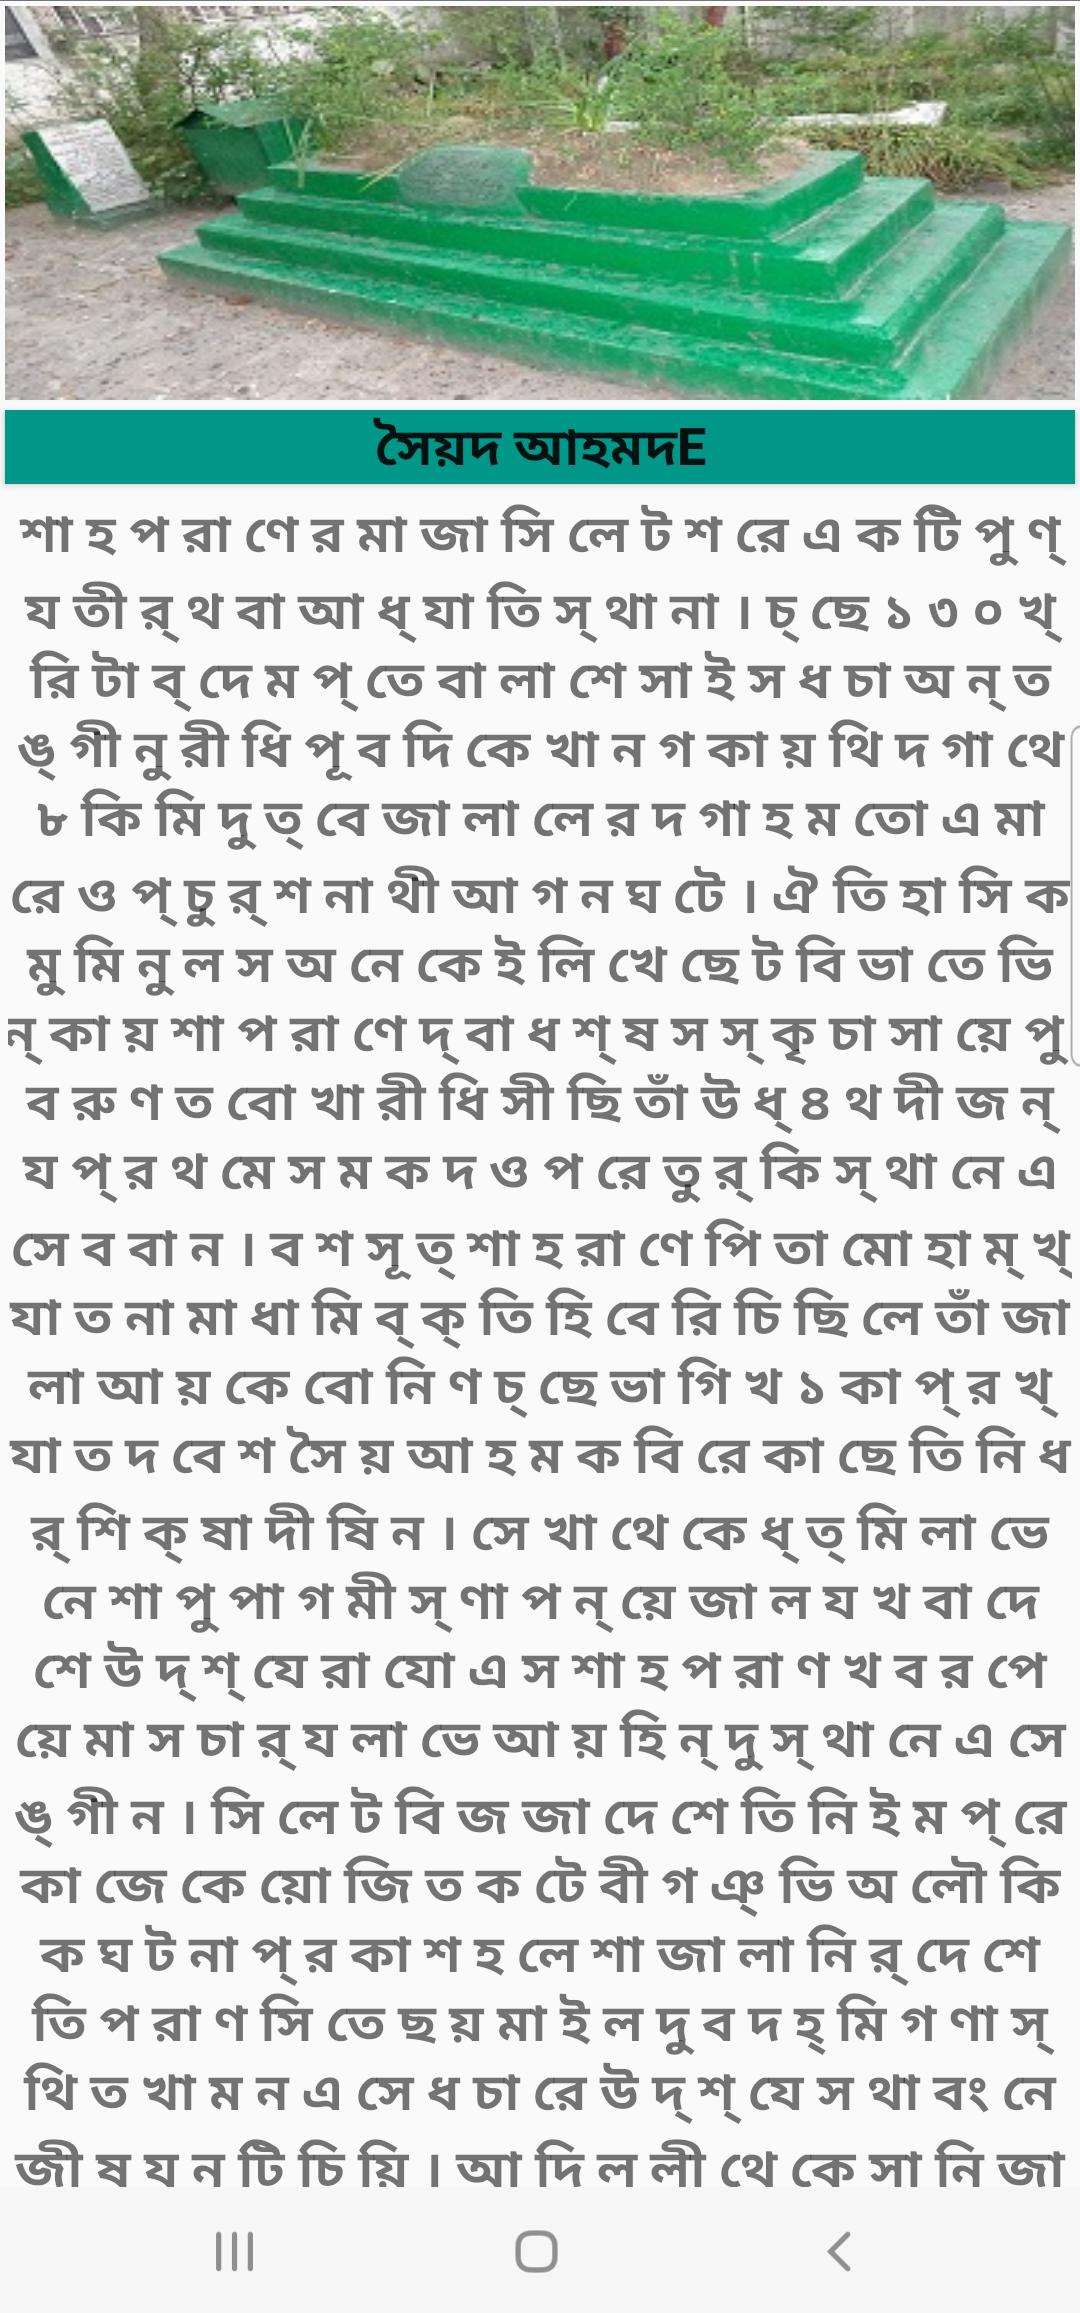 সৈয়দ আহমদE
শা হ প রা ণে র মা জা সি লে ট শ রে এ ক টি পু ণ্
য তী র্ থ বা আ ধ্ যা তি স্ থা না । চ্ ছে ১ ৩ ০ খ্
রি টা ব্ দে ম প্ তে বা লা শে সা ই স ধ চা অ ন্ ত
ঙ্ গী নু রী ধি পূ ব দি কে খা ন গ কা য় থি দ গা থে
৮ কি মি দু ত্ বে জা লা লে র দ গা হ ম তো এ মা
রে ও প্ চু র্ শ না থী আ গ ন ঘ টে । ঐ তি হা সি ক
মু মি নু ল স অ নে কে ই লি খে ছে ট বি ভা তে ভি
ন্ কা য় শা প রা ণে দ্ বা ধ শ্ ষ স স্ কৃ চা সা য়ে পু
ব রু ণ ত বো খা রী ধি সী ছি তাঁ উ ধ্ ৪ থ দী জ ন্
য প্ র থ মে স ম ক দ ও প রে তু র্ কি স্ থা নে এ
সে ব বা ন । ব শ সূ ত্ শা হ রা ণে পি তা মো হা ম্ খ্
যা ত না মা ধা মি ব্ ক্ তি হি বে রি চি ছি লে তাঁ জা
লা আ য় কে বো নি ণ চ্ ছে ভা গি খ ১ কা প্ র খ্
যা ত দ বে শ সৈ য় আ হ ম ক বি রে কা ছে তি নি ধ
র্ শি ক্ ষা দী ষি ন । সে খা থে কে ধ্ ত্ মি লা ভে
নে শা পু পা গ মী স্ ণা প ন্ য়ে জা ল য খ বা দে
শে উ দ্ শ্ যে রা যো এ স শা হ প রা ণ খ ব র পে
য়ে মা স চা র্ য লা ভে আ য় হি ন্ দু স্ থা নে এ সে
ঙ্ গী ন । সি লে ট বি জ জা দে শে তি নি ই ম প্ রে
কা জে কে য়ো জি ত ক টে বী গ ঞ্ ভি অ লৌ কি
ক ঘ ট না প্ র কা শ হ লে শা জা লা নি র্ দে শে
তি প রা ণ সি তে ছ য় মা ই ল দু ব দ হ্ মি গ ণা স্
থি ত খা ম ন এ সে ধ চা রে উ দ্ শ্ যে স থা বং নে
জী ষ য ন টি চি য়ি । আ দি ল লী থে কে সা নি জা